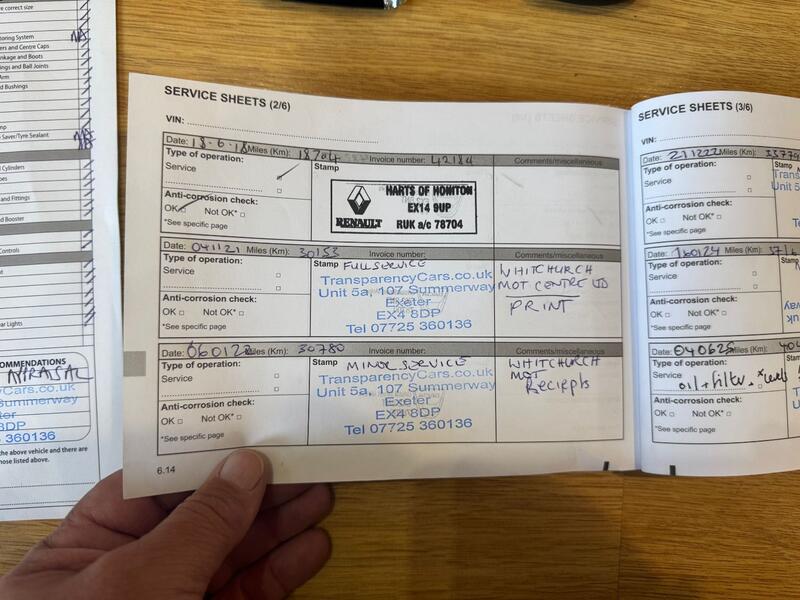 e correct size
toring System NA
ers and Centre Caps
nkage and Boots
ings and Ball Joints
Arm
d Bushings
mp
e Saver/Tyre Sealant NA
l Cylinders
pes
and Fittings
d Booster
Controls
t
ar Lights
MMENDATIONS
APPRAISAL
Cars.co.uk
Summerway
8DP
5 360136
he above vehicle and there are
hose listed above.
SERVICE SHEETS (2/6)
VIN:
Date: 18-6-18 Miles (Km): 18704 Invoice number: 42184 Comments/miscellaneous
Type of operation: Stamp
Service
Anti-corrosion check:
OK Not OK*
*See specific page
RENAULT
HARTS OF HONITON
EX14 9UP
RUK a/c 78704
Date: 041121 Miles (Km): 30153 Invoice number: Comments/miscellaneous
Type of operation: Stamp FULL SERVICE
Service
Anti-corrosion check:
OK Not OK*
*See specific page
TransparencyCars.co.uk
Unit 5a, 107 Summerway
Exeter
EX4 8DP
Tel 07725 360136
WHITCHURCH
MOT CENTRE LTD
PRINT
Date: 060122 Miles (Km): 30780 Invoice number: Comments/miscellaneous
Type of operation: Stamp MINOR SERVICE
Service
Anti-corrosion check:
OK Not OK*
*See specific page
TransparencyCars.co.uk
Unit 5a, 107 Summerway
Exeter
EX4 8DP
Tel 07725 360136
WHITCHURCH
MOT
Reciepts
6.14
SERVICE SHEETS (3/6)
VIN:
Date: 211222 Miles (Km): 33779
Type of operation: Stamp
Service
Anti-corrosion check:
OK Not OK*
*See specific page
Trans
Unit 5
Date: 160124 Miles (Km):
Type of operation:
Service
Anti-corrosion check:
OK Not OK*
*See specific page
Date: 040625 Miles (Km):
Type of operation: Stamp
Service
oil + filter
Anti-corrosion check:
OK Not OK*
*See specific page